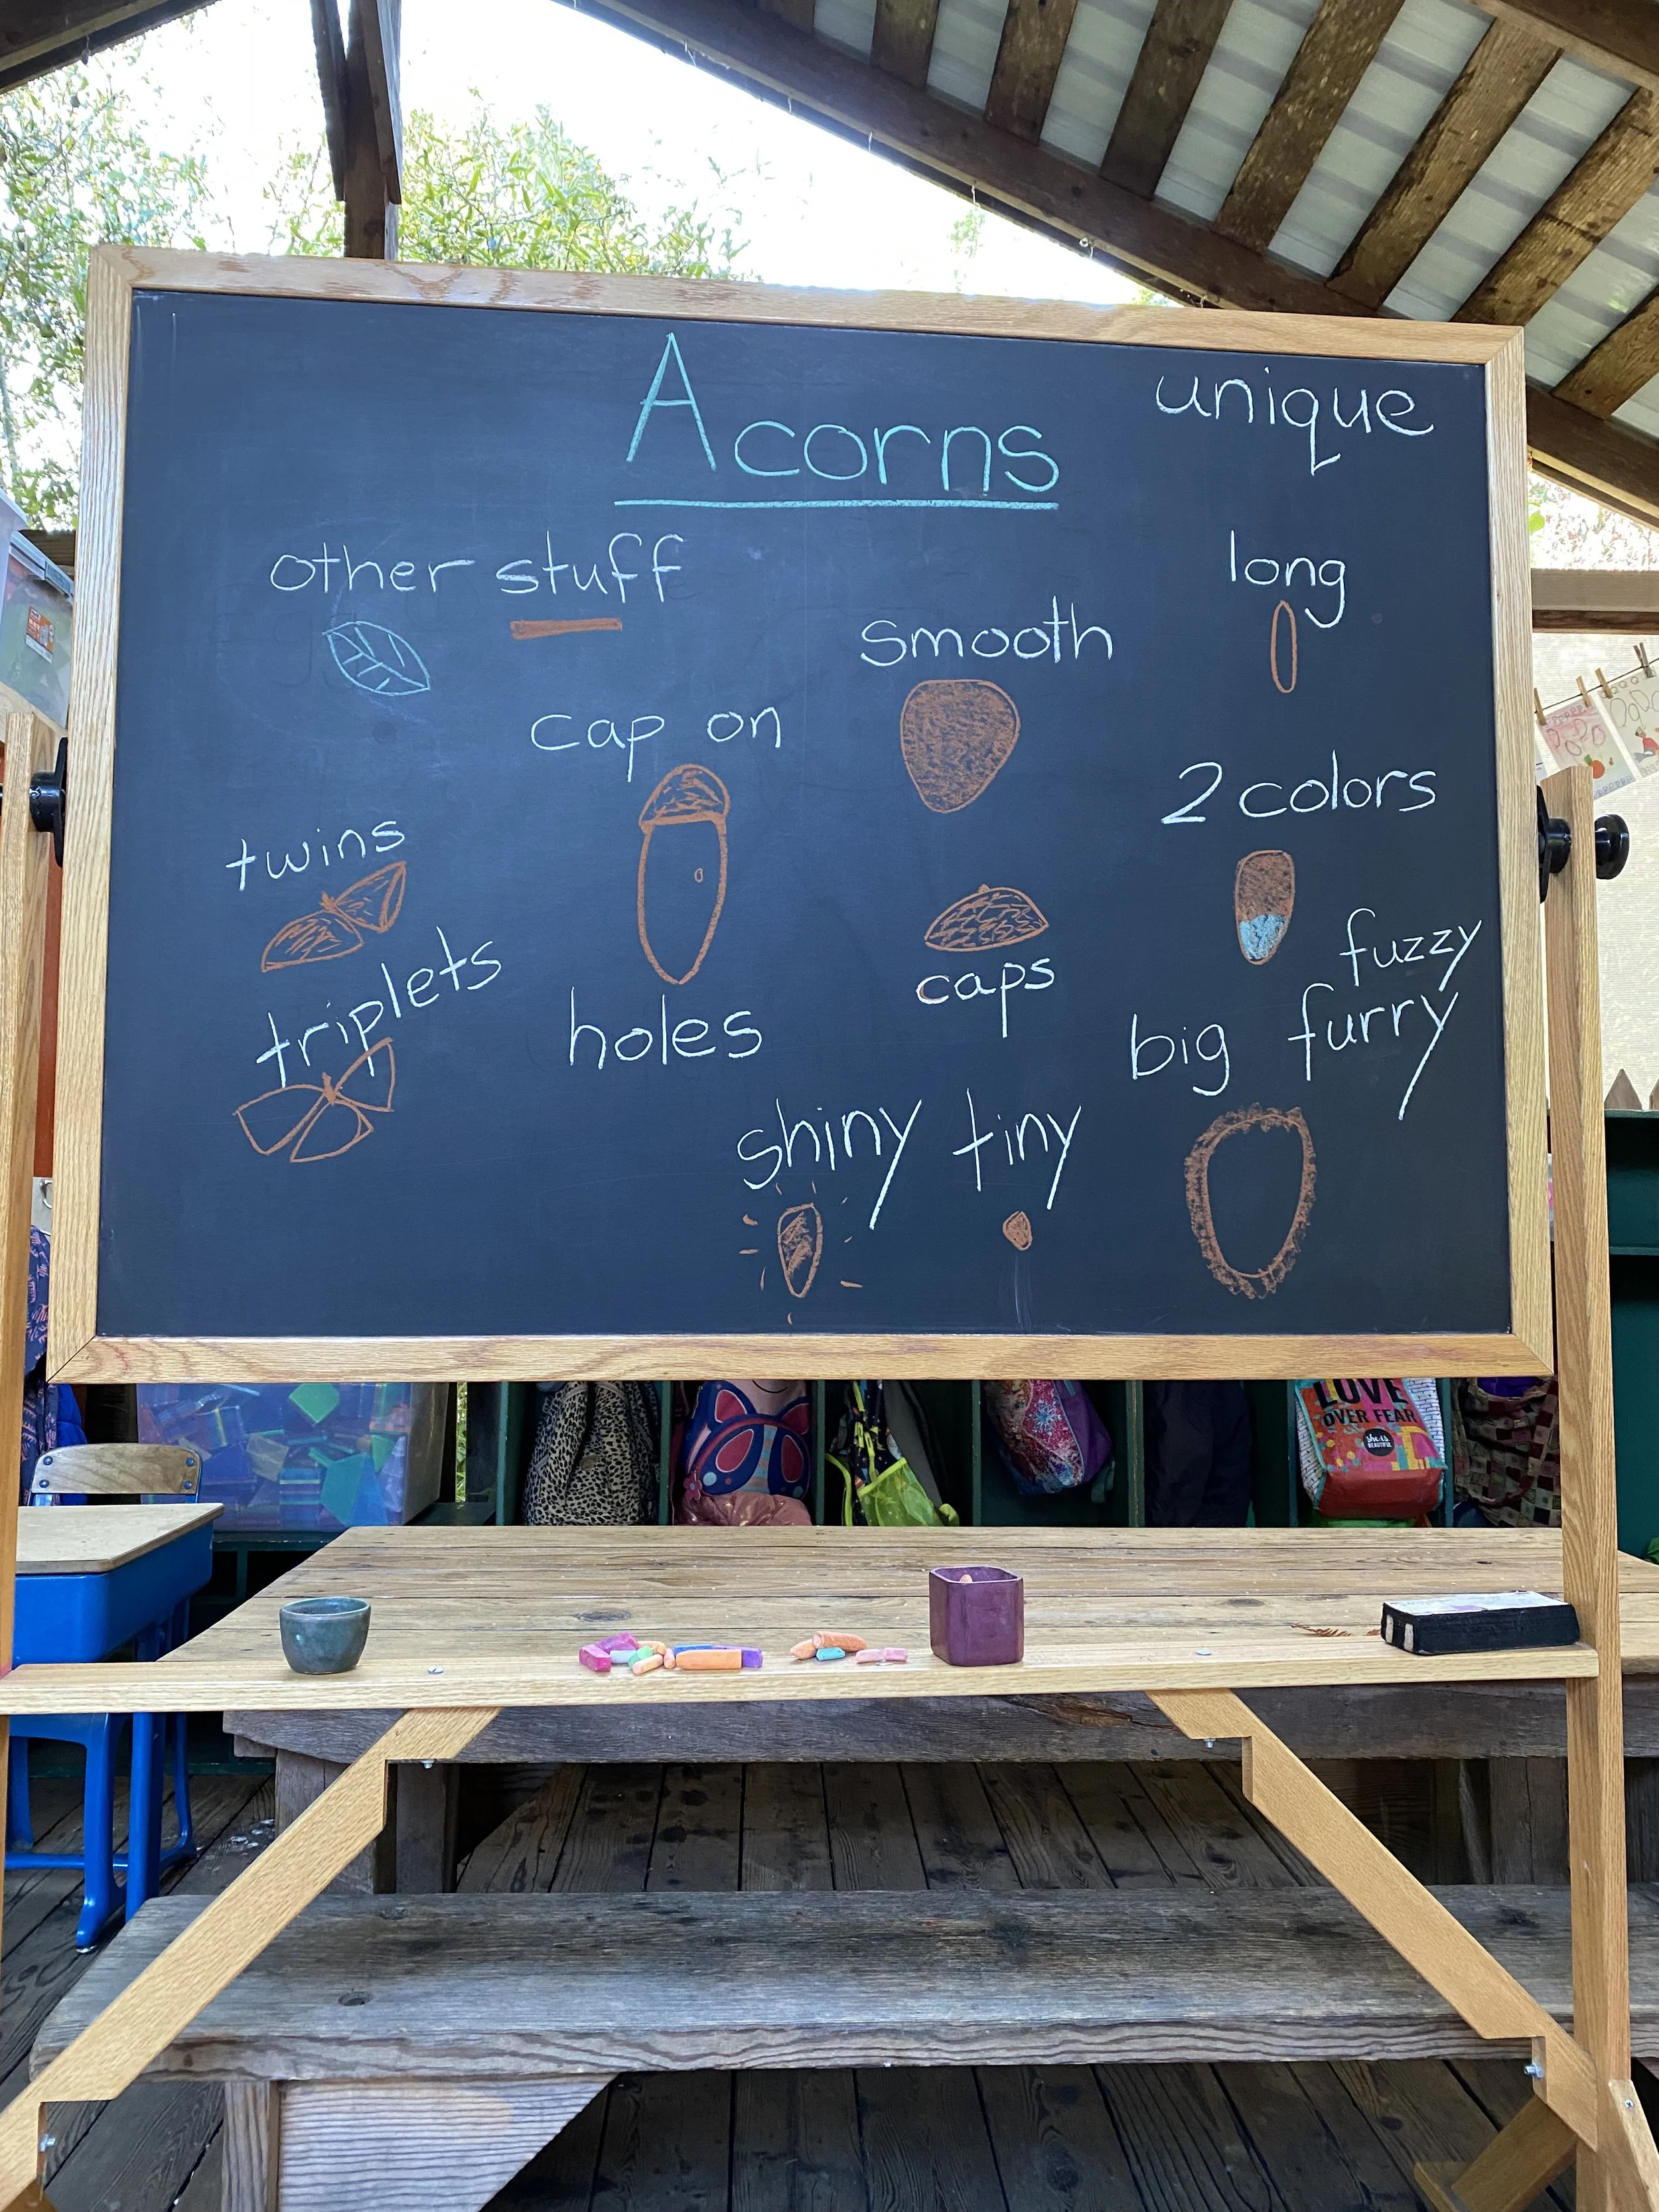 Acorns
unique
other stuff
long
smooth
cap on
2 colors
twins
fuzzy
triplets
caps
holes
big furry
shiny tiny
LOVE
OVER FEAR
she is
BEAUTIFUL